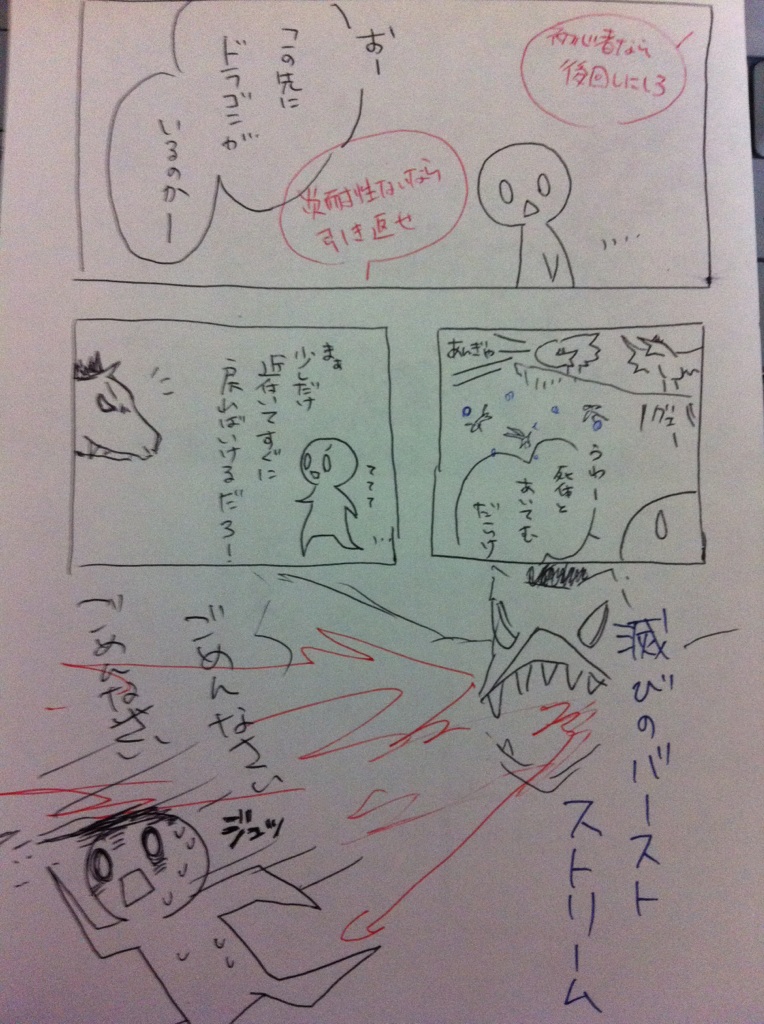 初心者なら
後回しにしろ
おー
この先に
ドラゴンが
いるのかー
炎耐性ないなら
引き返せ
グェー
あんぎゃー
うわー
死体と
あいてむ
だらけ
まぁ
少しだけ
近付いてすぐに
戻ればいけるだろー!
ててて
滅びのバースト
ストリーム
ごめんなさい
ごめんなさい
ジュッ